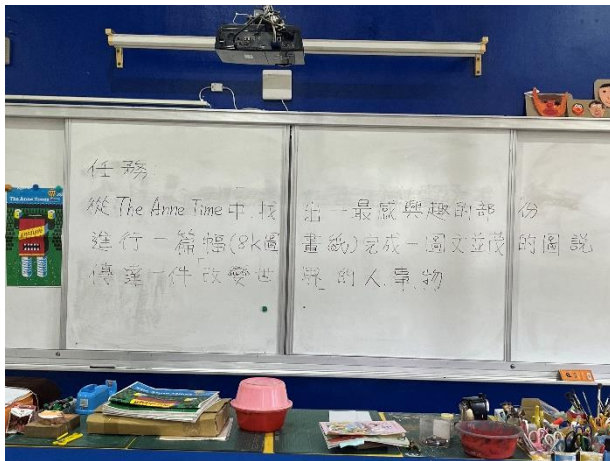 任務:
從 The Anne Time 中, 找出一最感興趣的部份
進行一篇幅(8k圖畫紙)完成一圖文並茂的圖說
傳達一件「改變世界」的人.事.物